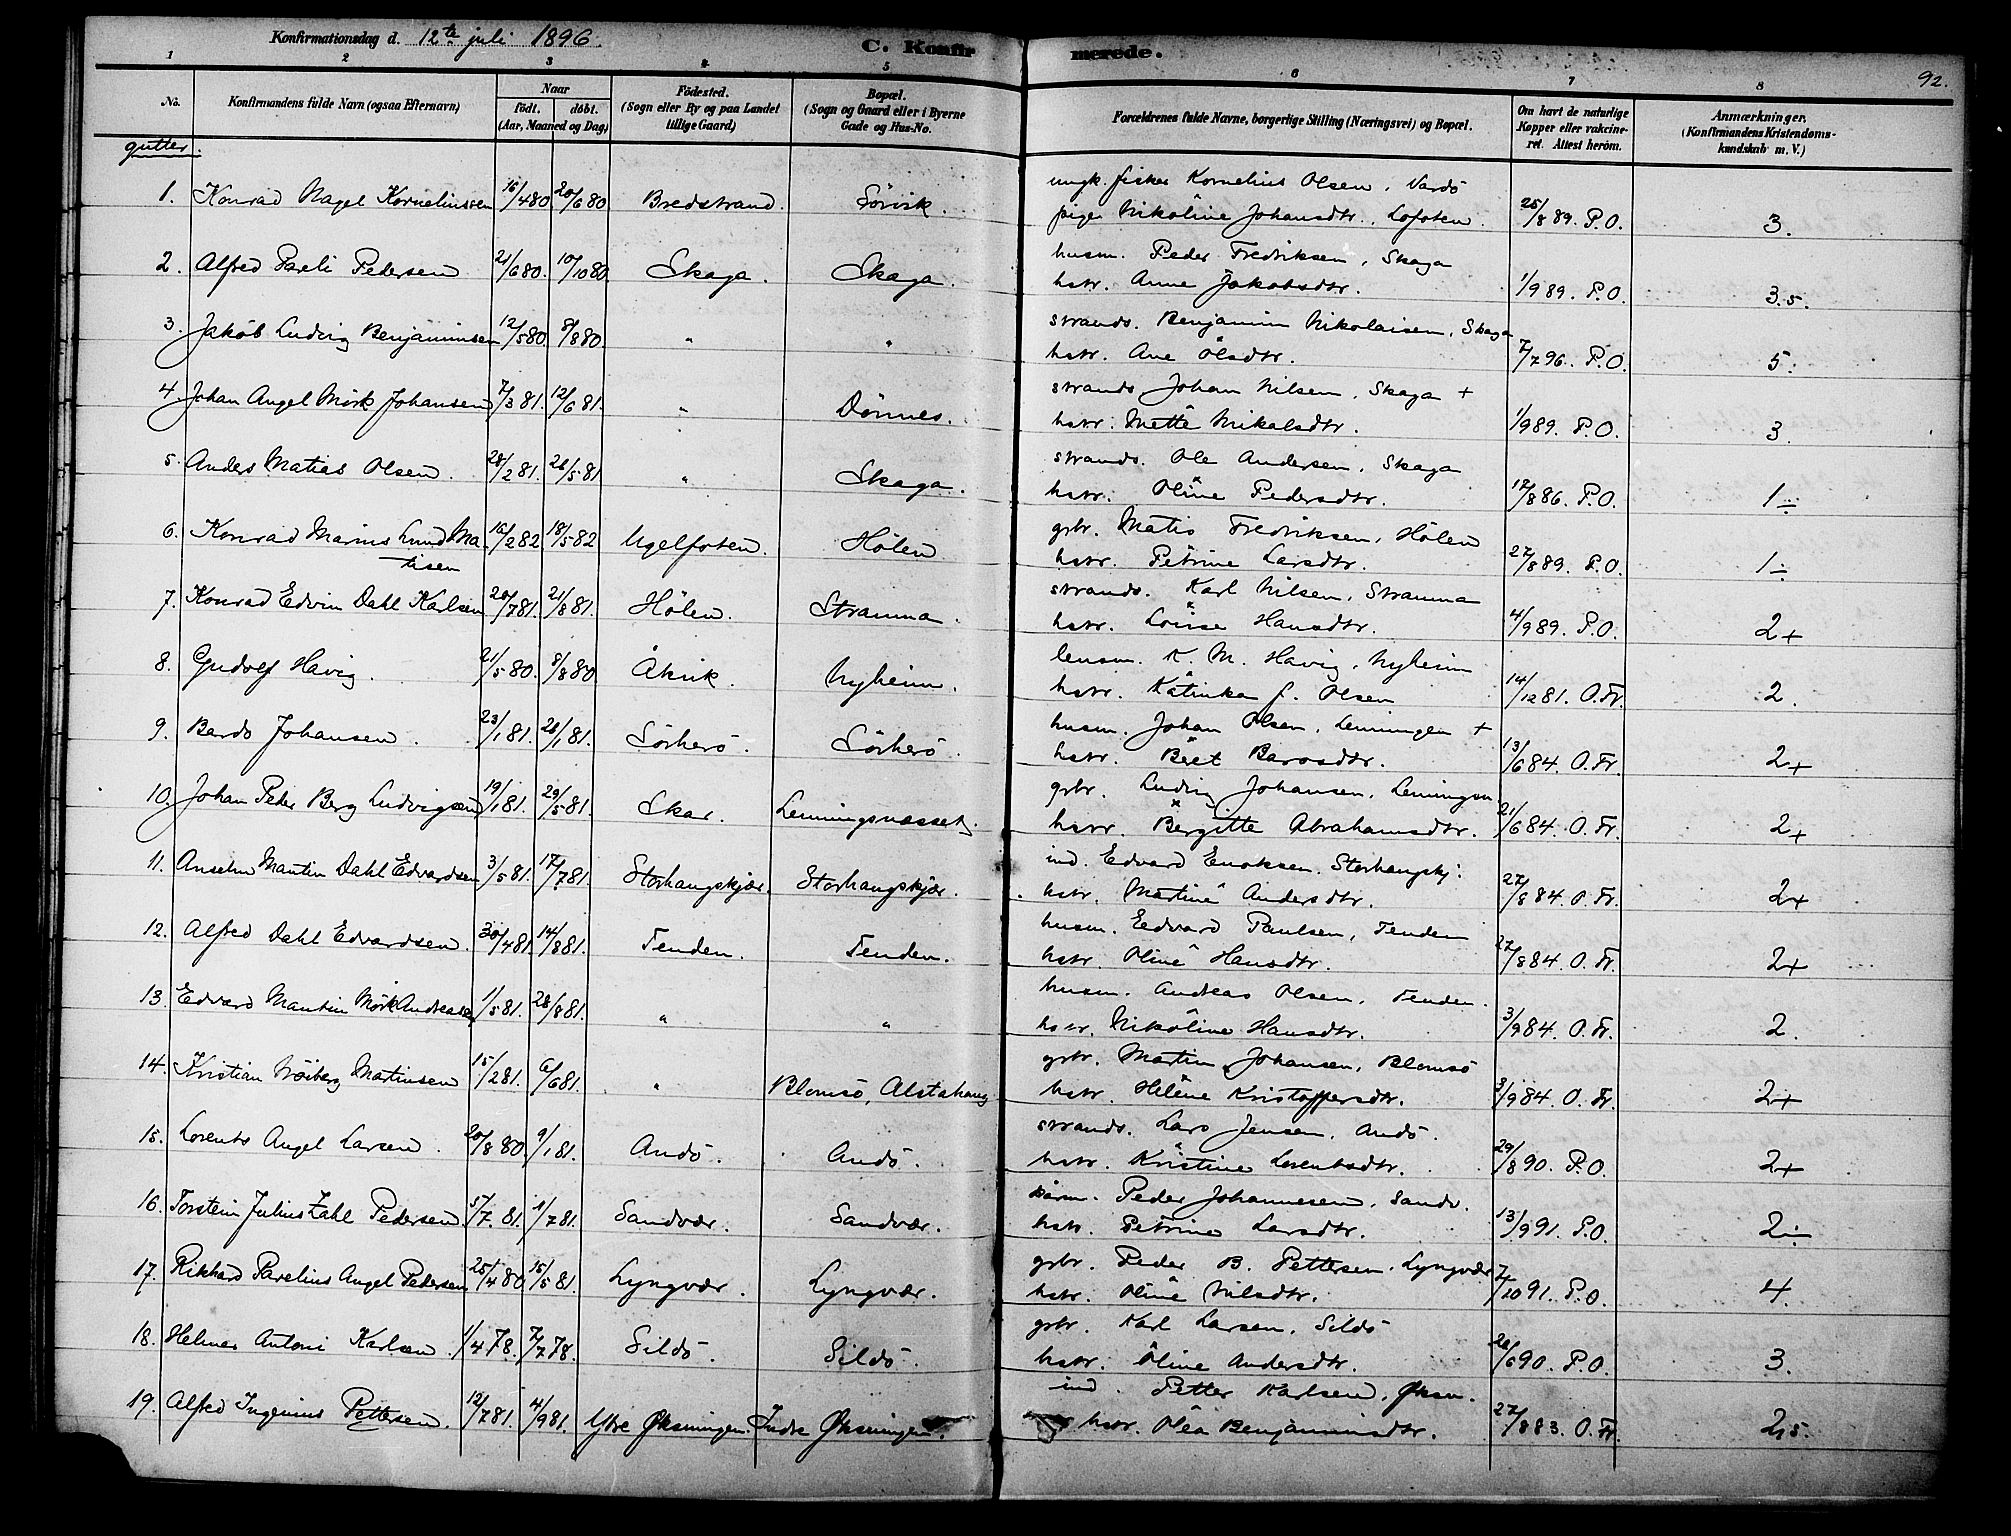 Konfirmationsdag d. 12te juli 1896.
C. Konfirmerede.
92.
1 2 3 4 5 6 7 8
No. Konfirmandens fulde Navn (ogsaa Efternavn) Naar født. døbt. (Aar, Maaned og Dag) Fødested. (Sogn eller By og paa Landet tillige Gaard) Bopæl. (Sogn og Gaard eller i Byerne Gade og Hus-No. Forældrenes fulde Navne, borgerlige Stilling (Næringsvei) og Bopæl. Om havt de naturlige Kopper eller vakcineret. Attest herom. Anmærkninger. (Konfirmandens Kristendomskundskab m. V.)
gutter.
1. Konrad Nagel Korneliussen 16/4 80 20/6 80 Bredstrand. Sörvik. ungk. fisker Kornelius Olsen, Vardö
pige Nikoline Johansdtr., Lofoten. 25/8 89. P.O. 3.
2. Alfred Pareli Pedersen 21/6 80. 10/10 80. Skaga. Skaga. husm. Peder Fredriksen, Skaga
hstr. Anne Jakobsdtr. 1/9 89. P.O. 3.5.
3. Jakob Ludvig Benjaminsen 12/5 80. 8/8 80. " " strands. Benjamin Nikolaisen, Skaga
hstr. Ane Olsdtr. 7/7 96. P.O. 5.
4. Johan Angel Mörk Johansen 7/3 81. 12/6 81. " Dönnes. strands Johan Nilsen, Skaga +
hstr. Mette Nikolsdtr. 1/9 89. P.O. 3.
5. Anders Matias Olsen. 28/2 81. 26/5 81 " Skaga. strands. Ole Andersen, Skaga
hstr. Oline Pedersdtr. 17/8 86. P.O. 1 ÷
6. Konrad Marius Lund Ma
tisen 16/2 82 18/5 82 Ugelfoten. Hölen grbr. Matis Fredriksen, Hölen
hstr. Petrine Larsdtr. 27/8 89. P.O. 1 ÷
7. Konrad Edvin Dahl Karlsen 20/7 81. 21/8 81. Hölen. Stranna. strands. Karl Nilsen, Stranna
hstr. Louise Hansdtr. 4/9 89. P.O. 2+
8. Gudolf Havig. 21/5 80. 8/8 80 Åkvik. Nyheim. lensm. K. M. Havig, Nyheim
hstr. Katinka f. Olsen 14/12 81. O.Fr. 2.
9. Bardo Johansen. 23/1 81. 28/1 81. Sörherö. Sörherö. husm. Johan Olsen, Lenningen +
hstr. Beret Barosdtr. 13/6 84. O.Fr. 2+
10. Johan Peder Berg Ludvigsen 19/1 81. 29/5 81. Skar. Lenningsvasset. grbr. Ludvig Johansen, Lenningen
hstr. Bergitte Abrahamsdtr. 21/6 84. O.Fr. 2+
11. Anselm Martin Dahl Edvardsen 3/5 81. 17/7 81. Storhangskjær. Storhangskjær. ind. Edvard Enoksen. Storhangskj.
hstr. Martine Andersdtr. 27/8 84. O.Fr. 2+
12. Alfred Dahl Edvardsen. 30/4 81. 14/8 81. Tenden. Tenden. husm. Edvard Paulsen, Tenden
hstr. Oline Hansdtr. 27/8 84. O.Fr. 2+
13. Edvard Martin Mörk Andreassen 1/5 81. 28/8 81. " " husm. Andreas Olsen, Tenden.
hstr. Nikoline Hansdtr. 3/9 84. O.Fr. 2.
14. Kristian Nöiberg Martinsen 15/2 81. 6/6 81. " Blomsö, Alstahaug grbr. Martin Johansen, Blomsö
hstr. Helene Kristoffersdtr. 3/9 84. O.Fr. 2+
15. Lorents Angel Larsen. 20/8 80. 9/1 81. Andö. Andö. strands. Lars Jensen, Andö.
hstr. Kristine Lorentsdtr. 29/8 90. P.O. 2+
16. Torstein Julius Zahl Pedersen 5/7 81. 1/7 81. Sandvær. Sandvær. Peder Johannesen, Sandv.
hstr. Petrine Larsdtr. 13/9 91. P.O. 2÷
17. Rikhard Parelius Angel Pedersen 25/4 80 15/5 81. Lyngvær. Lyngvær. grbr. Peder B. Pettersen, Lyngvær
hstr. Oline Nilsdtr. 7/10 91. P.O. 4.
18. Helmer Antoni Karlsen. 1/4 78. 7/7 78. Sildö. Sildö. grbr. Karl Larsen, Sildö
hstr. Oline Andersdtr. 26/6 90. P.O. 3.
19. Alfred Ingenius Pettersen. 12/7 81. 4/9 81. Ytre Øksningen. Indre Øksningen. ind. Petter Karlsen, Øksn.
hstr. Olea Benjaminsdtr. 27/8 83. O.Fr. 2,5.